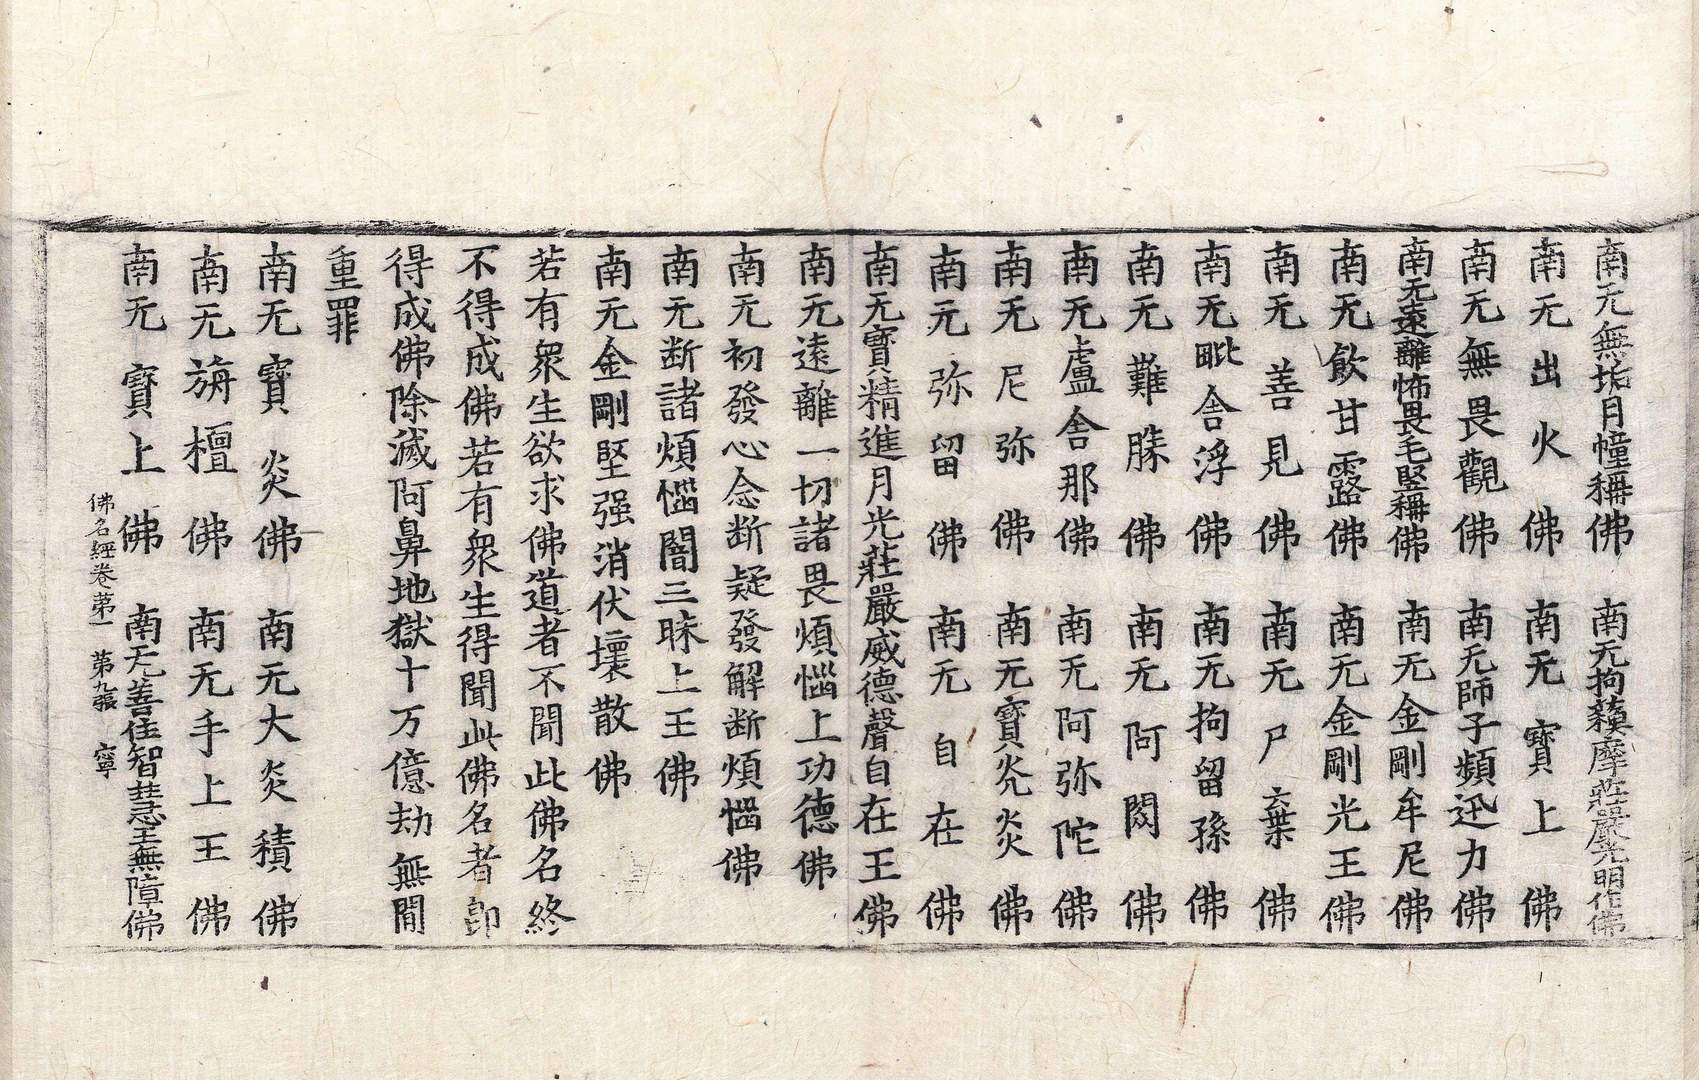 南无無垢月幢稱佛　南无拘蘓摩莊嚴光明作佛
南无出火佛　南无寶上佛
南无無畏觀佛　南无師子頻迅力佛
南无遠離怖畏毛竪稱佛　南无金剛牟尼佛
南无飲甘露佛　南无金剛光王佛
南无善見佛　南无尸棄佛
南无毗舍浮佛　南无拘留孫佛
南无難勝佛　南无阿閦佛
南无盧舍那佛　南无阿弥陀佛
南无尼弥佛　南无寶光炎佛
南无弥留佛　南无自在佛
南无寶精進月光莊嚴威德聲自在王佛
南无遠離一切諸畏煩惱上功德佛
南无初發心念断疑發解断煩惱佛
南无断諸煩惱闇三昧上王佛
南无金剛堅强消伏壞散佛
若有衆生欲求佛道者不聞此佛名終
不得成佛若有衆生得聞此佛名者即
得成佛除滅阿鼻地獄十万億劫無間
重罪
南无寶炎佛　南无大炎積佛
南无旃檀佛　南无手上王佛
南无寶上佛　南无善住智慧王無障佛
佛名經卷第一　第九張　寧